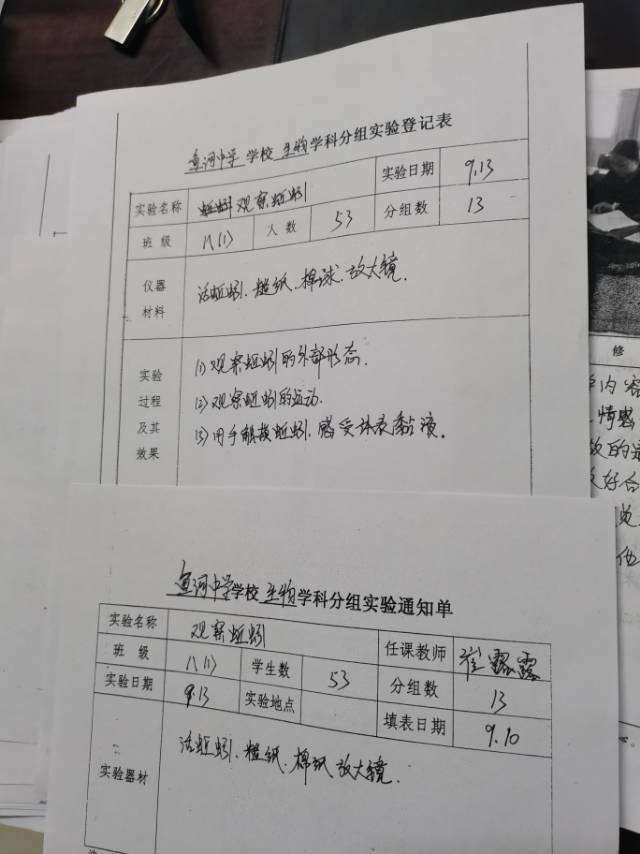 鱼河中学 学校 生物学科分组实验登记表
实验名称 观察蚯蚓 实验日期 9.13
班 级 八(1) 人 数 53 分组数 13
仪器
材料
活蚯蚓、糙纸、棉球、放大镜.
实验
过程
及其
效果
(1)观察蚯蚓的外部形态.
(2)观察蚯蚓的运动.
(3)用手触摸蚯蚓,感受体表黏液。
鱼河中学学校 生物学科分组实验通知单
实验名称 观察蚯蚓 任课教师 崔露露
班 级 八(1) 学生数 53 分组数 13
实验日期 9.13 实验地点 填表日期 9.10
实验器材 活蚯蚓、糙纸、棉纸 放大镜.
修
内容
情感
好合